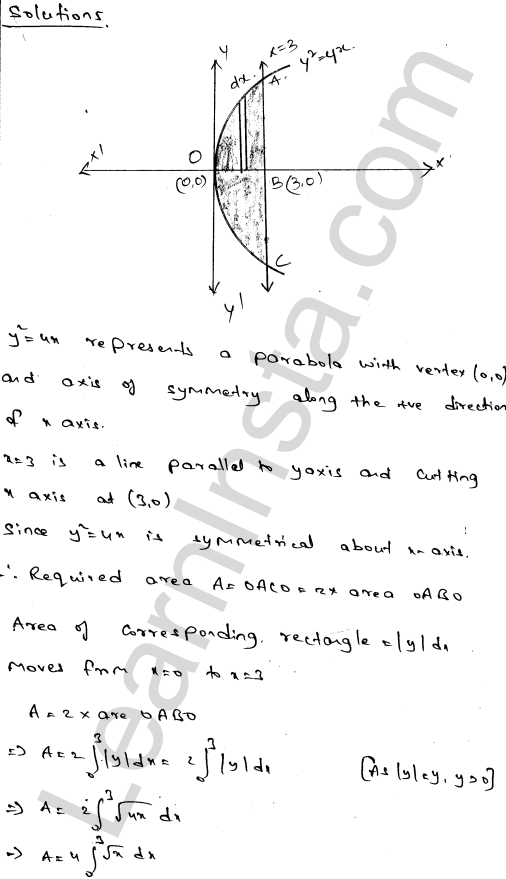 Solutions.
y
x=3
y²=4x
dx
A
x'
O
x
(0,0)
B(3,0)
C
y'
y²=4x represents a parabola with vertex (0,0)
and axis of symmetry along the +ve direction
of x axis.
x=3 is a line parallel to yaxis and cutting
x axis at (3,0)
Since y²=4x is symmetrical about x-axis.
∴ Required area A= OACO = 2x area OABO
Area of corresponding rectangle = |y|dx
Moves from x=0 to x=3
A = 2 x are OABO
=> A= 2∫₀³|y|dx = 2∫₀³|y|dx [As |y|=y, y>0]
=> A= 2∫₀³√4x dx
=> A= 4∫₀³√x dx
LearnInsta.com